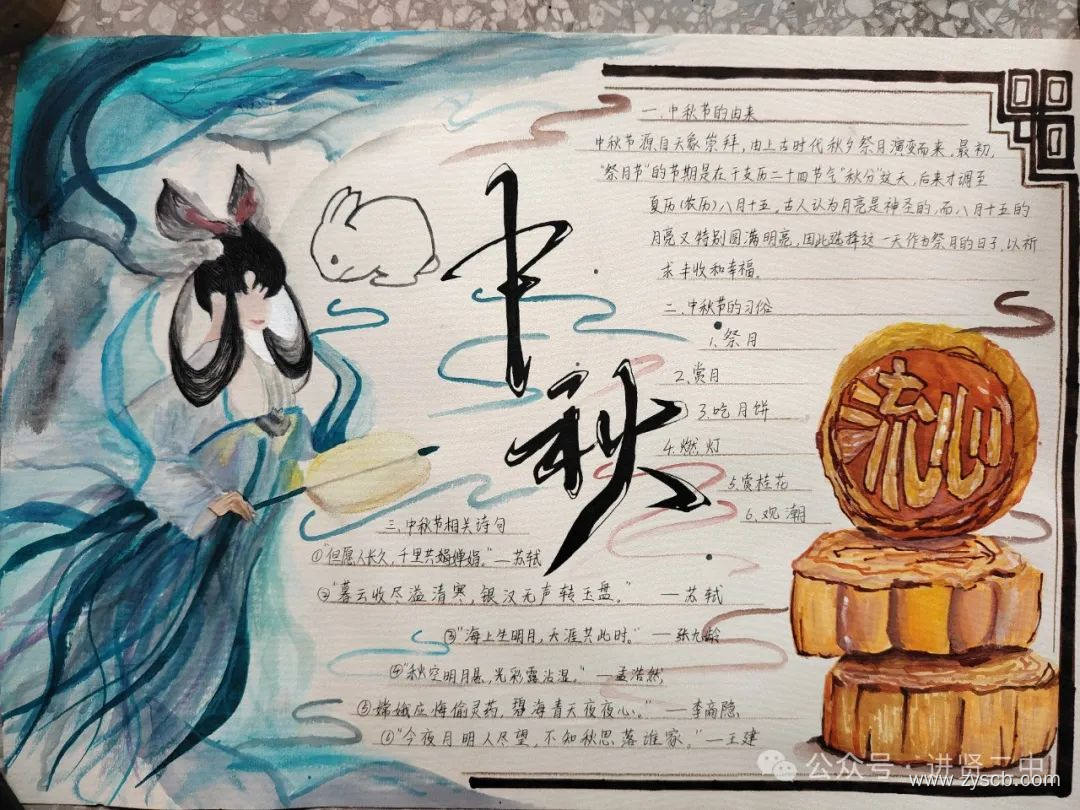 中秋
一、中秋节的由来
中秋节源自天象崇拜，由上古时代秋夕祭月演变而来。最初，
“祭月节”的节期是在干支历二十四节气“秋分”这天，后来才调至
夏历(农历)八月十五。古人认为月亮是神圣的，而八月十五的
月亮又特别圆满明亮，因此选择这一天作为祭月的日子，以祈
求丰收和幸福。
二、中秋节的习俗
1、祭月
2、赏月
3、吃月饼
4、燃灯
5、赏桂花
6、观潮
流心
三、中秋节相关诗句
①“但愿人长久，千里共婵娟。”—苏轼
②“暮云收尽溢清寒，银汉无声转玉盘。”—苏轼
③“海上生明月，天涯共此时。”—张九龄
④“秋空明月悬，光彩露沾湿。”—孟浩然
⑤“嫦娥应悔偷灵药，碧海青天夜夜心。”—李商隐
⑥“今夜月明人尽望，不知秋思落谁家。”—王建
公众号·进贤二中
www.zyscb.com